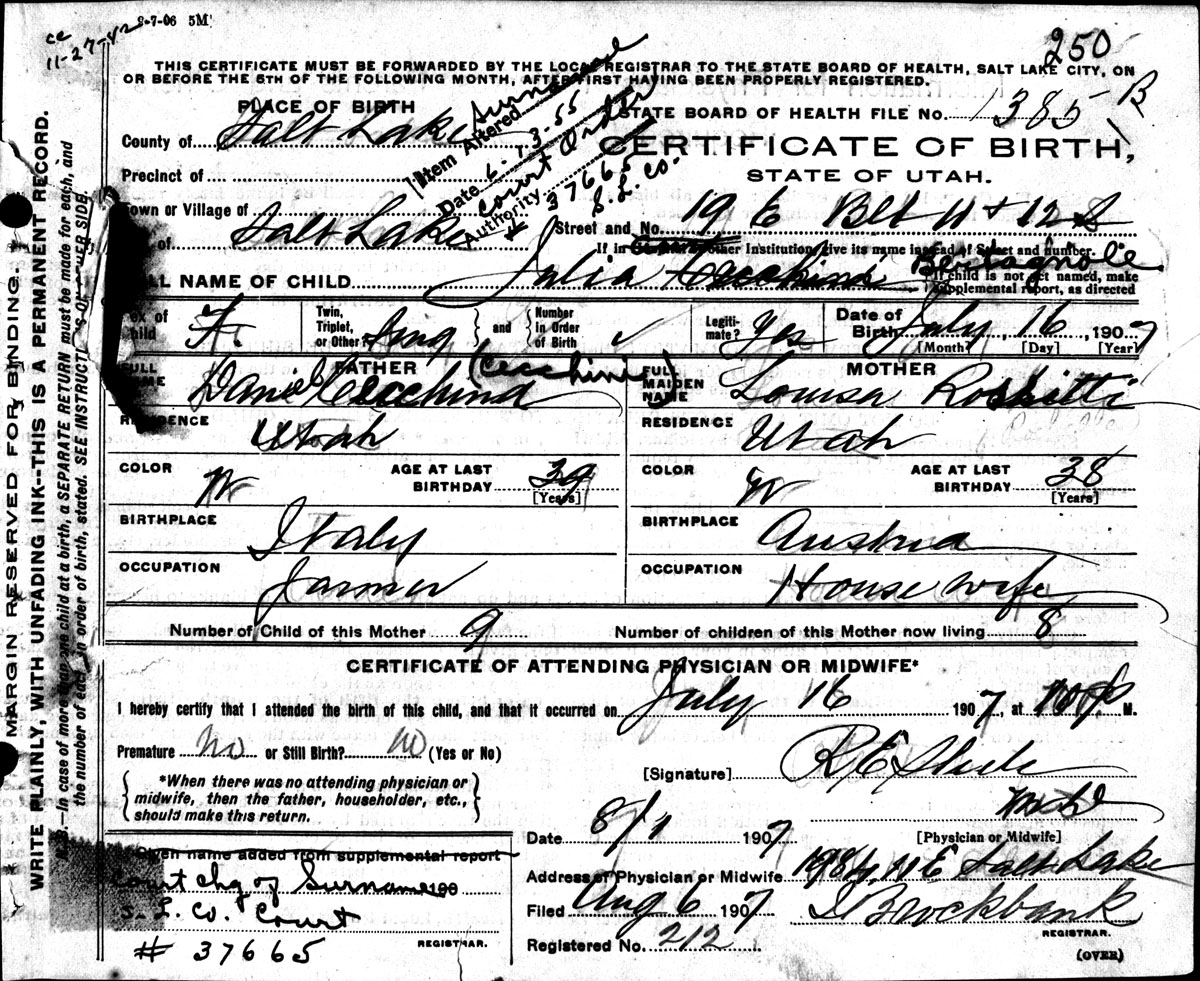 ce
11-27-42
8-7-06 5M
250
THIS CERTIFICATE MUST BE FORWARDED BY THE LOCAL REGISTRAR TO THE STATE BOARD OF HEALTH, SALT LAKE CITY, ON
OR BEFORE THE 5TH OF THE FOLLOWING MONTH, AFTER FIRST HAVING BEEN PROPERLY REGISTERED.
PLACE OF BIRTH
STATE BOARD OF HEALTH FILE No. 1385 B
County of Salt Lake
CERTIFICATE OF BIRTH,
STATE OF UTAH.
Precinct of
Surname
Item Altered
Date 6-3-55
Court Order
Authority
# 37665
S. L. Co.
Town or Village of
of Salt Lake
Street and No. 19 E Bet 11 + 12 S
If in other Institution, give its name instead of Street and number.
FULL NAME OF CHILD Julia Cecchini Bertagnole
If child is not yet named, make
supplemental report, as directed
Sex of
Child F.
Twin,
Triplet,
or Other? Sing
and
Number
in Order
of Birth ✓
Legiti-
mate? Yes
Date of
Birth July 16, 1907
[Month] [Day] [Year]
FATHER
FULL
NAME Daniel Cecchina (Cecchini)
MOTHER
FULL
MAIDEN
NAME Louisa Roskitti
RESIDENCE Utah
RESIDENCE Utah
COLOR W
AGE AT LAST
BIRTHDAY 39
[Years]
COLOR W
AGE AT LAST
BIRTHDAY 38
[Years]
BIRTHPLACE Italy
BIRTHPLACE Austria
OCCUPATION Farmer
OCCUPATION House wife
Number of Child of this Mother 9
Number of children of this Mother now living 8
CERTIFICATE OF ATTENDING PHYSICIAN OR MIDWIFE*
I hereby certify that I attended the birth of this child, and that it occurred on July 16 1907, at 10 P. M.
Premature No or Still Birth? No (Yes or No)
*When there was no attending physician or
midwife, then the father, householder, etc.,
should make this return.
[Signature] R E
[Physician or Midwife]
Date 8/1 1907
Address of Physician or Midwife Salt Lake
Filed Aug 6 1907
Brockbank
REGISTRAR.
Registered No. 212
(OVER)
Given name added from supplemental report
Court chg of Surname 190
S. L. Co. Court
# 37665
REGISTRAR.
MARGIN RESERVED FOR BINDING.
WRITE PLAINLY, WITH UNFADING INK--THIS IS A PERMANENT RECORD.
N. B.—In case of more than one child at a birth, a SEPARATE RETURN must be made for each, and
the number of each, in order of birth, stated. SEE INSTRUCTIONS OF OTHER SIDE.